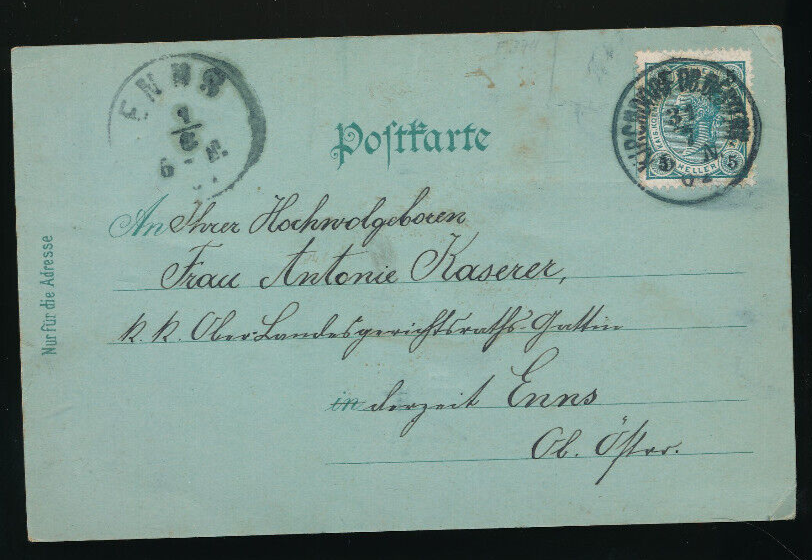 ENNS
1/8
6
Postkarte
KIRCHDORF
31
7
N
02
5 HELLER 5
An Ihrer Hochwolgeboren
Frau Antonie Kaserer,
k. k. Ober-Landesgerichtsraths-Gattin
in derzeit Enns
Ob. Östrr.
Nur für die Adresse